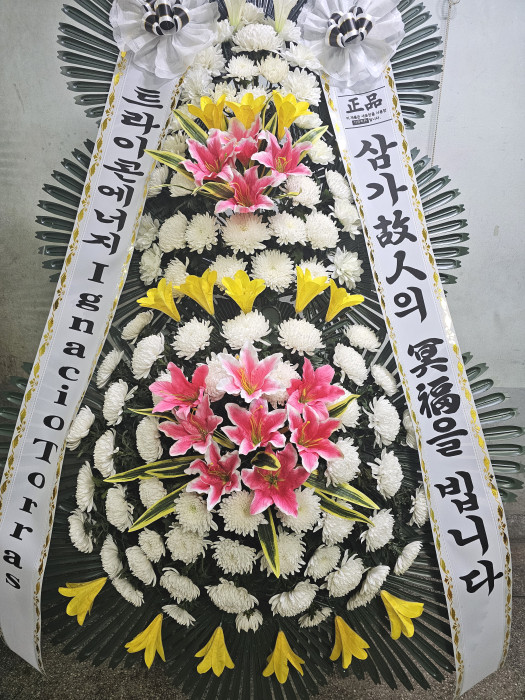 트라이콘에너지 Ignacio Torras
正品
삼가 故人의 冥福을 빕니다